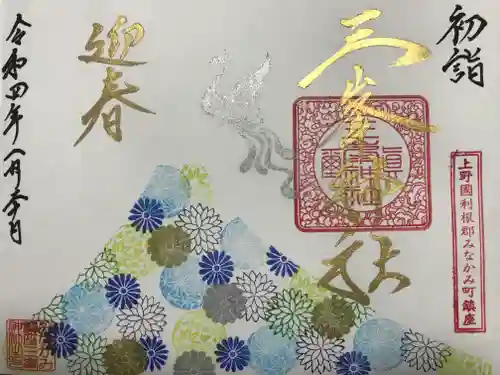 初詣
上野國利根郡みなかみ町鎮座
三峯神社
迎春
令和四年一月